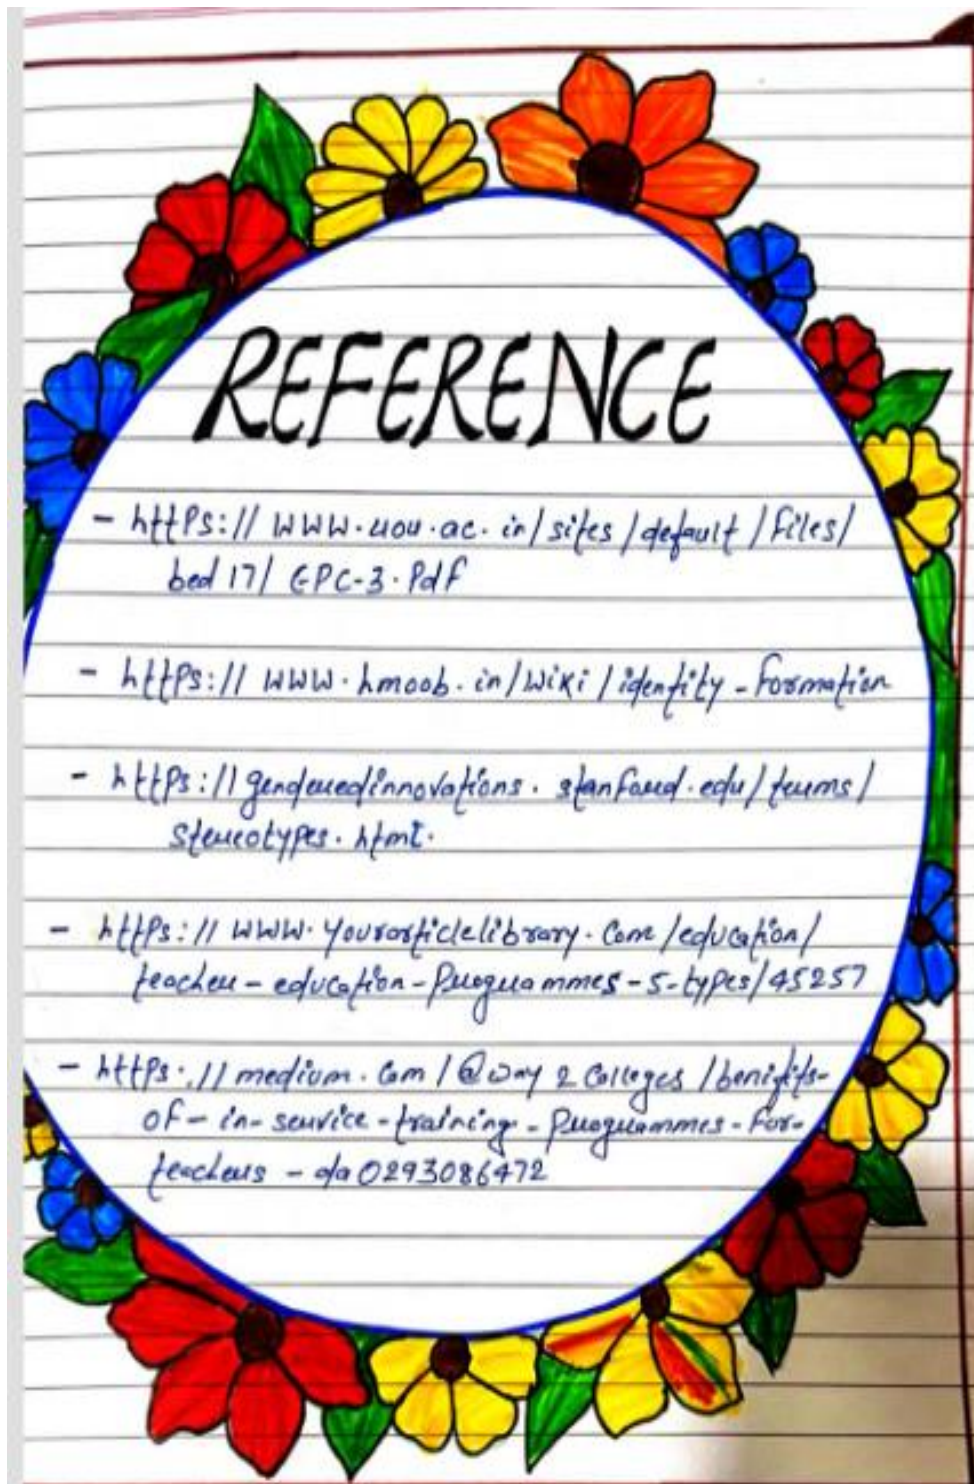 REFERENCE
- https://www.uou.ac.in/sites/default/files/
bed17/EPC-3.Pdf
- https://www.hmoob.in/wiki/identity-formation
- https://genderedinnovations.stanford.edu/terms/
stereotypes.html.
- https://www.yourarticlelibrary.com/education/
teacher-education-Programmes-5-types/45257
- https://medium.com/@way2colleges/benifits-
of-in-service-training-Programmes-for-
teachers-da0293086472